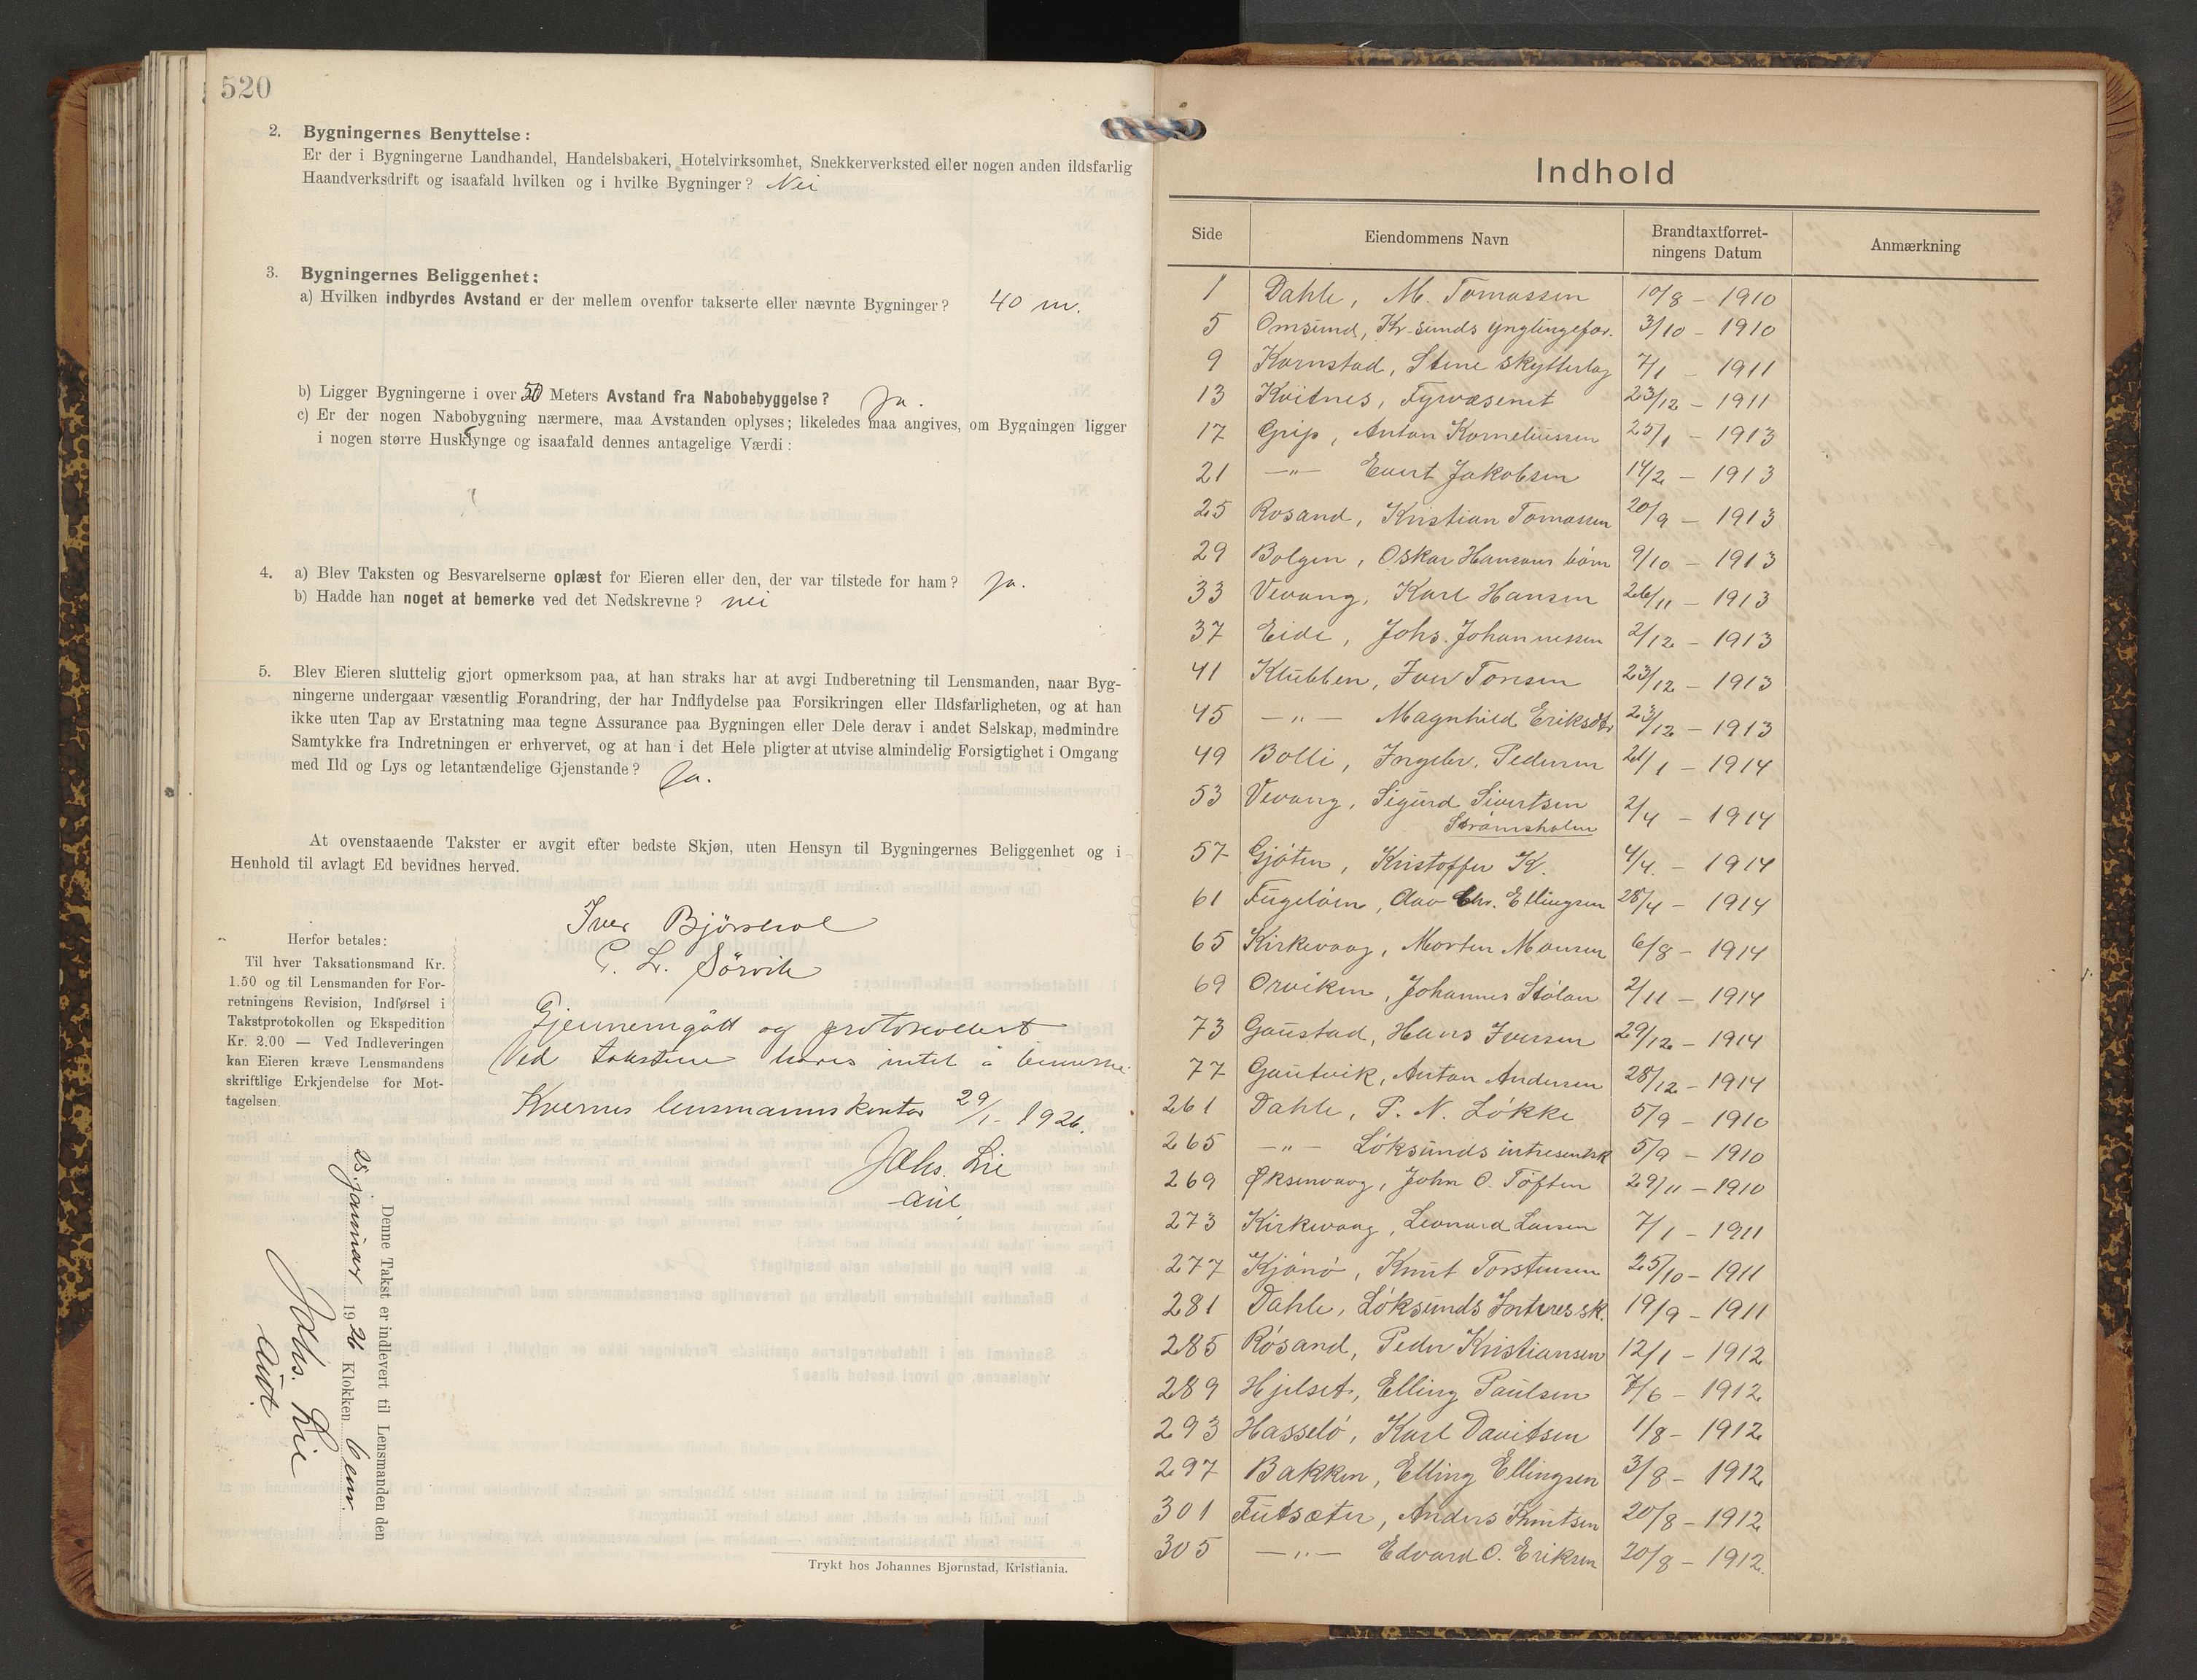 520
2. Bygningernes Benyttelse:
Er der i Bygningerne Landhandel, Handelsbakeri, Hotelvirksomhet, Snekkerverksted eller nogen anden ildsfarlig
Haandverksdrift og isaafald hvilken og i hvilke Bygninger? Nei
3. Bygningernes Beliggenhet:
a) Hvilken indbyrdes Avstand er der mellem ovenfor takserte eller nævnte Bygninger? 40 m.
b) Ligger Bygningerne i over 50 Meters Avstand fra Nabobebyggelse? Ja.
c) Er der nogen Nabobygning nærmere, maa Avstanden oplyses; likeledes maa angives, om Bygningen ligger
i nogen større Husklynge og isaafald dennes antagelige Værdi:
4. a) Blev Taksten og Besvarelserne oplæst for Eieren eller den, der var tilstede for ham? Ja.
b) Hadde han noget at bemerke ved det Nedskrevne? nei
5. Blev Eieren sluttelig gjort opmerksom paa, at han straks har at avgi Indberetning til Lensmanden, naar Byg-
ningerne undergaar væsentlig Forandring, der har Indflydelse paa Forsikringen eller Ildsfarligheten, og at han
ikke uten Tap av Erstatning maa tegne Assurance paa Bygningen eller Dele derav i andet Selskap, medmindre
Samtykke fra Indretningen er erhvervet, og at han i det Hele pligter at utvise almindelig Forsigtighet i Omgang
med Ild og Lys og letantændelige Gjenstande? Ja.
At ovenstaaende Takster er avgit efter bedste Skjøn, uten Hensyn til Bygningernes Beliggenhet og i
Henhold til avlagt Ed bevidnes herved.
Iver
P. L. Sörvik
Herfor betales:
Til hver Taksationsmand Kr.
1.50 og til Lensmanden for For-
retningens Revision, Indførsel i
Takstprotokollen og Ekspedition
Kr. 2.00 — Ved Indleveringen
kan Eieren kræve Lensmandens
skriftlige Erkjendelse for Mot-
tagelsen.
Gjennemgått og protokollert
Ved takstene haves intet å bemerke.
Kvernes lensmannskontor 29/1- 1926.
Johs. Lie
aut.
Denne Takst er indlevert til Lensmanden den
28. januar 1926 Klokken 6 em.
Johs. Lie
aut.
Trykt hos Johannes Bjørnstad, Kristiania.
Indhold
Side Eiendommens Navn Brandtaxtforret-
ningens Datum Anmærkning
1 Dahle, M. Tomassen 10/8 - 1910
5 Omsund, Kr-sunds Ynglingefor. 3/10 - 1910
9 Kornstad, Stene skytterlag 7/1 - 1911
13 Kvitnes, Fyrvæsenet 23/12 - 1911
17 Grip, Anton Korneliussen 25/1 - 1913
21 —"— Evert Jakobsen 14/2 - 1913
25 Rosand, Kristian Tomassen 20/9 - 1913
29 Bolgen, Oskar Hansens börn 9/10 - 1913
33 Vevang, Karl Hansen 26/11 - 1913
37 Eide, Johs. Johannessen 2/12 - 1913
41 Klubben, Iver Toresen 23/12 - 1913
45 —"— Magnhild Eriksdtr 23/12 - 1913
49 Bolli, Ingebr. Pedersen 21/1 - 1914
53 Vevang, Sigurd Sivertsen
Strømsholm 2/4 - 1914
57 Gjöten, Kristoffer K. 4/4. - 1914
61 Fugelöen, Chr. Ellingsen 28/4 - 1914
65 Kirkevaag, Morten Monsen 6/8 - 1914
69 Orviken, Johannes Stölan 2/11 - 1914
73 Gaustad, Hans Iversen 29/12 - 1914
77 Gautvik, Anton Andersen 28/12 - 1914
261 Dahle, P. N. Lökke 5/9 - 1910
265 —"— Löksunds intresentsk 5/9 - 1910
269 Øksenvaag, John O. Töften 29/11 - 1910
273 Kirkevaag, Leonard Larsen 7/1 - 1911
277 Kjönö, Knut Torstensen 25/10 - 1911
281 Dahle, Löksunds sk. 19/9 - 1911
285 Rösand, Peder Kristiansen 12/1 - 1912
289 Hjelset, Elling Paulsen 7/6 - 1912
293 Hasselö, Karl Davitsen 1/8 - 1912
297 Bakken, Elling Ellingsen 3/8 - 1912
301 Futsæter, Anders Knutsen 20/8 - 1912
305 —"— Edvard O. Eriksen 20/8 - 1912.